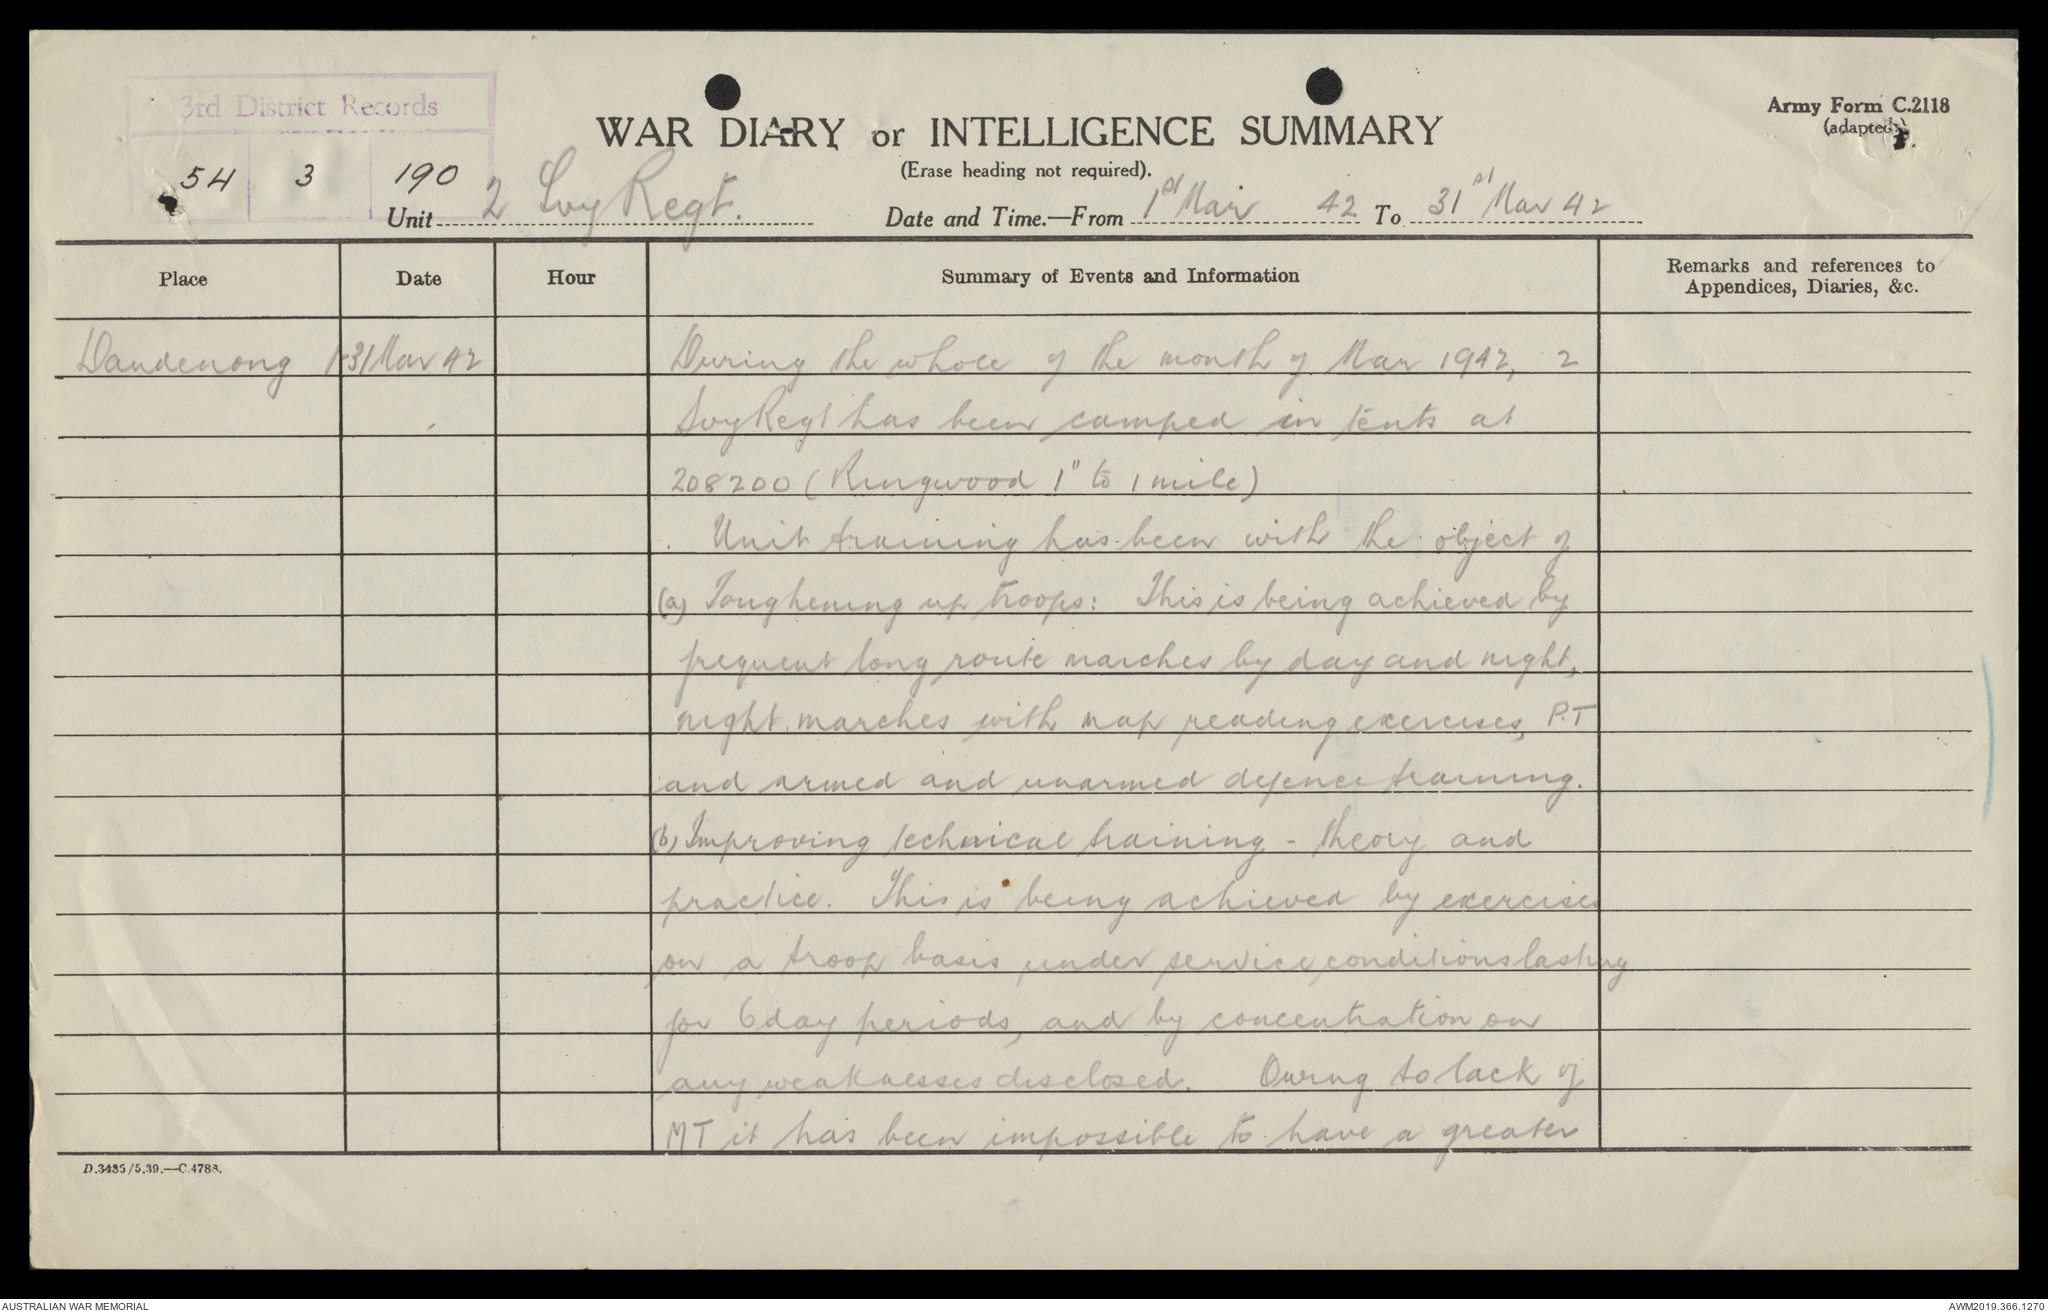 3rd District Records
54 3 190
WAR DIARY or INTELLIGENCE SUMMARY
(Erase heading not required).
Army Form C.2118
(adapted).
Unit 2 Svy Regt.
Date and Time.—From 1st Mar 42 To 31st Mar 42
Place Date Hour Summary of Events and Information Remarks and references to
Appendices, Diaries, &c.
Dandenong 1-31 Mar 42 During the whole of the month of Mar 1942, 2
Svy Regt has been camped in tents at
208200 (Ringwood 1" to 1 mile)
Unit training has been with the object of
(a) Toughening up troops: This is being achieved by
frequent long route marches by day and night,
night marches with map reading exercises, P.T
and armed and unarmed defence training.
(b) Improving technical training - theory and
practice. This is being achieved by exercises
on a troop basis under service conditions lasting
for 6 day periods, and by concentration on
any weaknesses disclosed. Owing to lack of
MT it has been impossible to have a greater
D.3435/5.39.—C.4788.
AUSTRALIAN WAR MEMORIAL
AWM2019.366.1270